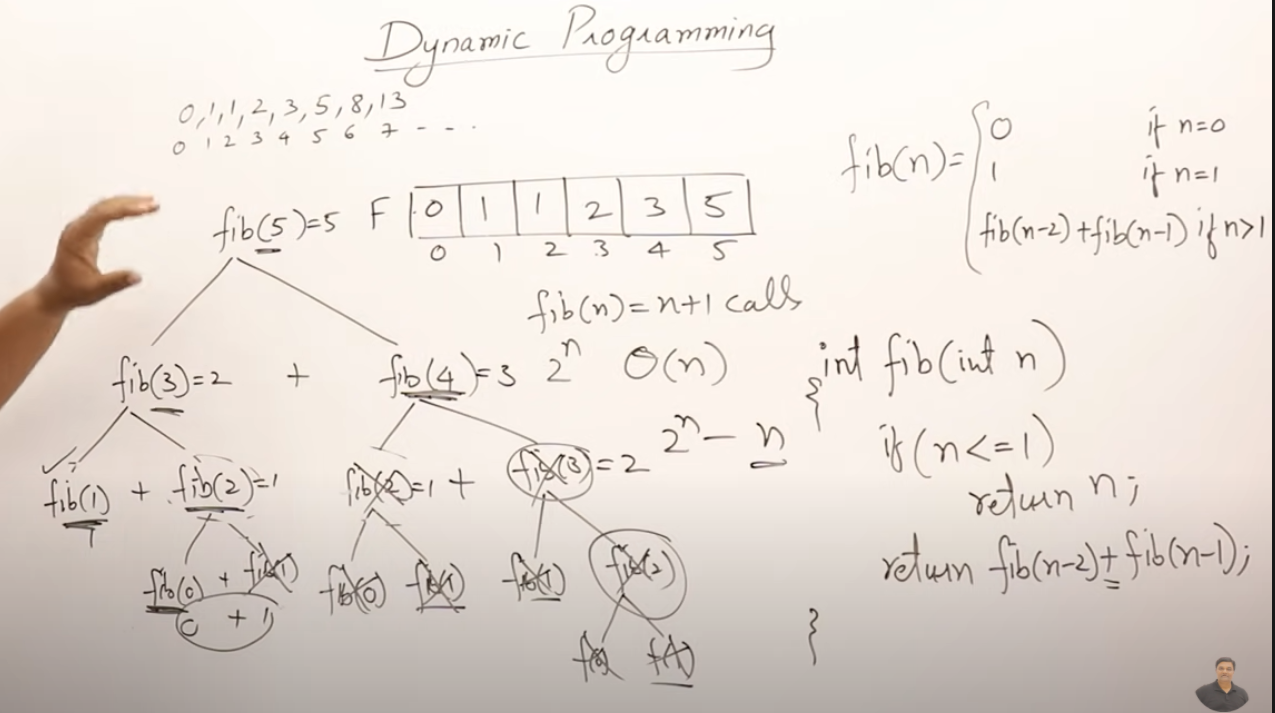 Dynamic Programming
0,1,1,2,3,5,8,13
0 1 2 3 4 5 6 7 - - - .
fib(n)=
0 if n=0
1 if n=1
fib(n-2)+fib(n-1) if n>1
fib(5)=5
F 0 1 1 2 3 5
0 1 2 3 4 5
fib(n)=n+1 calls
fib(3)=2 + fib(4)=3
2ⁿ O(n)
2ⁿ - n
fib(1) + fib(2)=1
fib(2)=1 + fib(3)=2
1
fib(0) + fib(1)
fib(0) fib(1)
fib(1) fib(2)
0 + 1
f(0) f(1)
int fib(int n)
{
if(n<=1)
return n;
return fib(n-2)+fib(n-1);
}